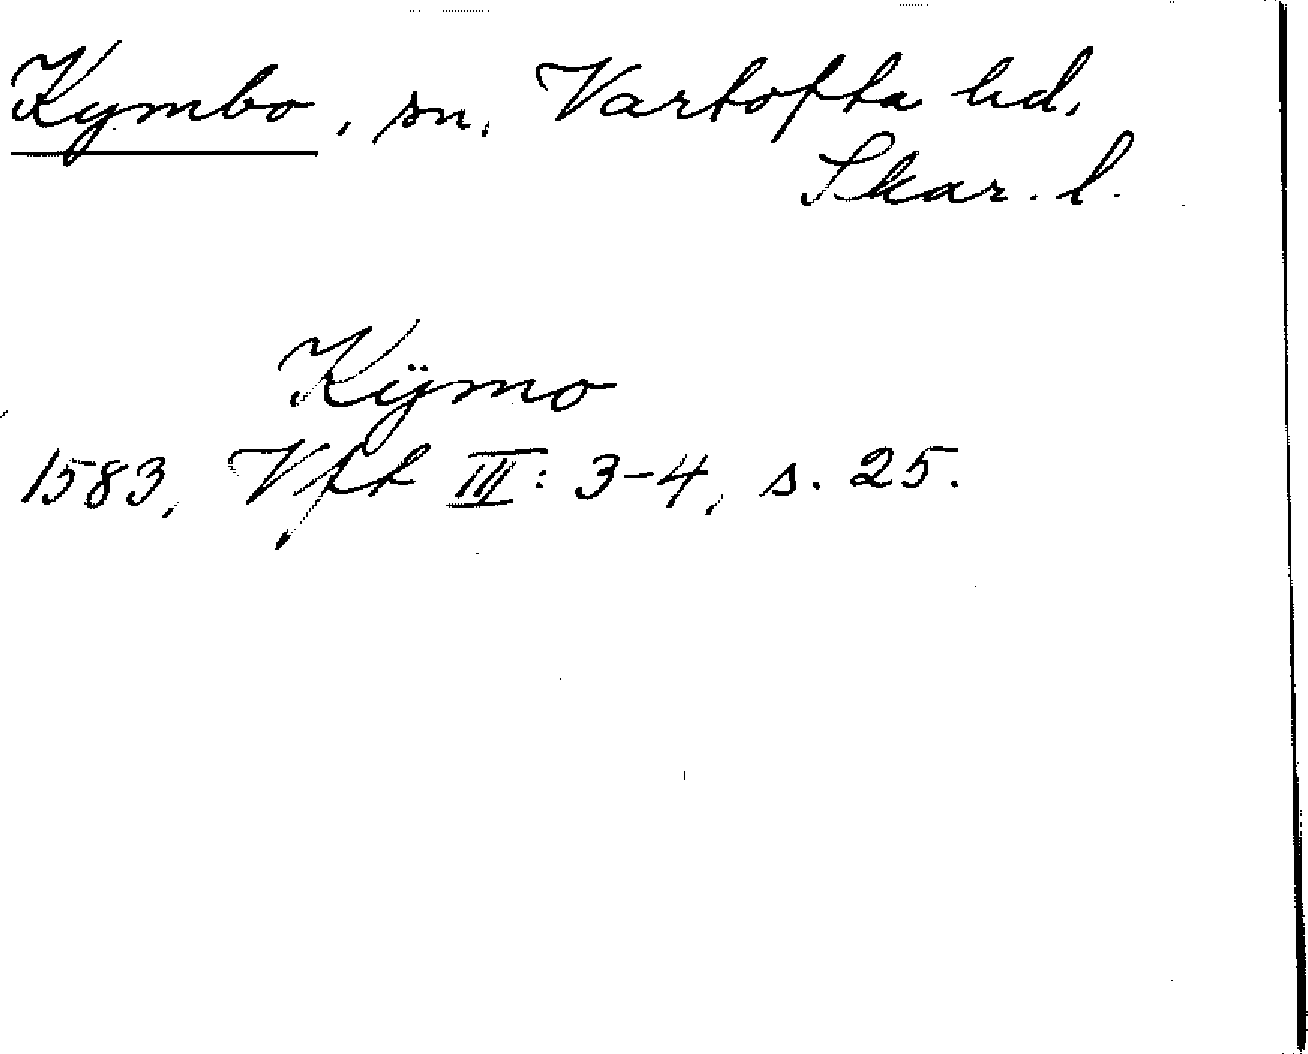 Kymbo, sn. Vartofta hd.
Skar. l.
Kÿmo
1583, Vft III: 3-4, s. 25.